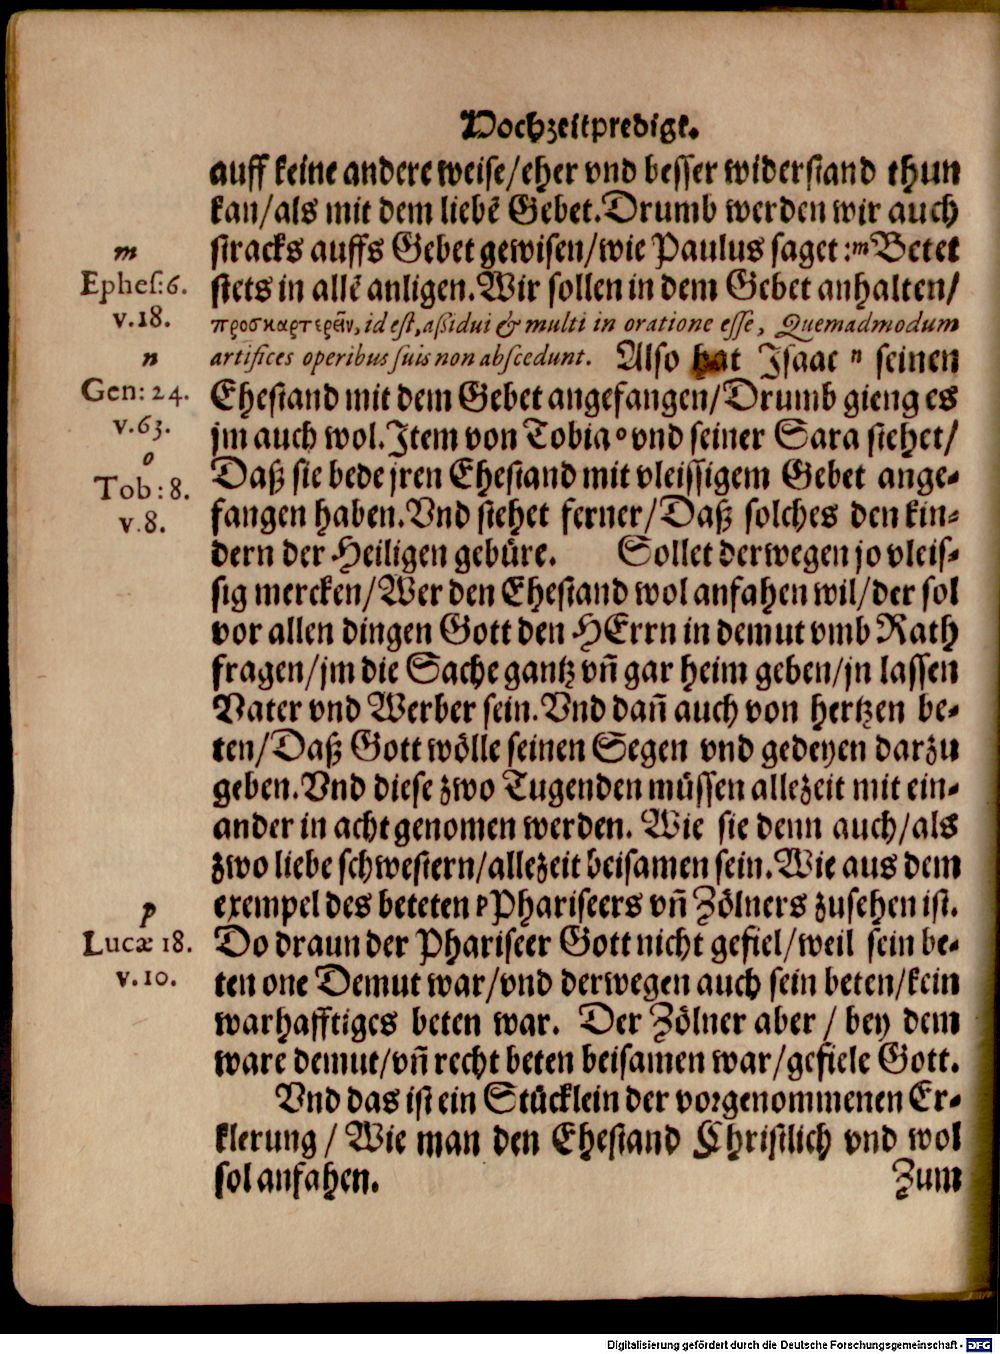 Hochzeitpredigt.
auff keine andere weise/eher vnd besser widerstand thun
kan/als mit dem liebē Gebet. Drumb werden wir auch
stracks auffs Gebet gewisen/wie Paulus saget: m Betet
stets in allē anligen. Wir sollen in dem Gebet anhalten/
προσκαρτερεῖν, id est, aßidui & multi in oratione esse, Quemadmodum
artifices operibus suis non abscedunt. Also hat Isaac n seinen
Ehestand mit dem Gebet angefangen/Drumb gieng es
jm auch wol. Item von Tobia o vnd seiner Sara stehet/
Daß sie bede jren Ehestand mit vleissigem Gebet ange-
fangen haben. Vnd stehet ferner/Daß solches den kin-
dern der Heiligen gebüre. Sollet derwegen jo vleis-
sig mercken/Wer den Ehestand wol anfahen wil/der sol
vor allen dingen Gott den HErrn in demut vmb Rath
fragen/jm die Sache gantz vñ gar heim geben/jn lassen
Vater vnd Werber sein. Vnd dañ auch von hertzen be-
ten/Daß Gott wölle seinen Segen vnd gedeyen darzu
geben. Vnd diese zwo Tugenden müssen allezeit mit ein-
ander in acht genomen werden. Wie sie denn auch/als
zwo liebe schwestern/allezeit beisamen sein. Wie aus dem
exempel des beteten p Phariseers vñ Zölners zusehen ist.
Do draun der Phariseer Gott nicht gefiel/weil sein be-
ten one Demut war/vnd derwegen auch sein beten/kein
warhafftiges beten war. Der Zölner aber / bey dem
ware demut/vñ recht beten beisamen war/gefiele Gott.
Vnd das ist ein Stücklein der vorgenommenen Er-
klerung / Wie man den Ehestand Christlich vnd wol
sol anfahen.
Zum
m
Ephes: 6.
v. 18.
n
Gen: 24.
v. 63.
o
Tob: 8.
v. 8.
p
Lucæ 18.
v. 10.
Digitalisierung gefördert durch die Deutsche Forschungsgemeinschaft - DFG